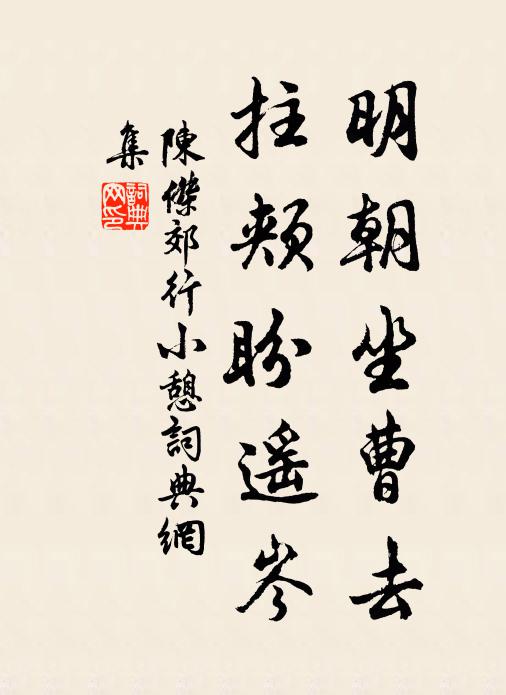 明朝坐曹去
拄頰盼遥岑
陳傑郊行小憩詞典網
集
詞典
网印